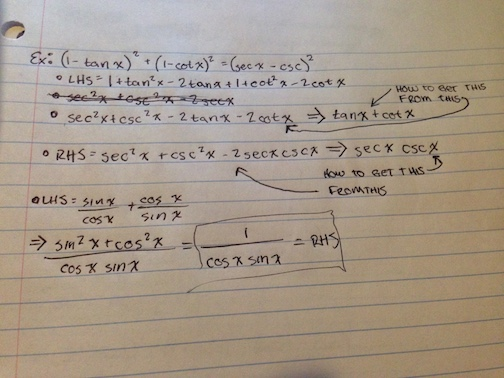 Ex: (1-tanx)² + (1-cotx)² = (secx - csc)²
• LHS = 1 + tan²x - 2tanx + 1 + cot²x - 2cotx
HOW TO GET THIS
FROM THIS
• sec²x + csc²x - 2secx
• sec²x + csc²x - 2tanx - 2cotx ⇒ tanx + cotx
• RHS = sec²x + csc²x - 2secxcscx ⇒ secx cscx
HOW TO GET THIS
FROM THIS
• LHS = sinx/cosx + cosx/sinx
⇒ sin²x + cos²x / cosx sinx = 1 / cosx sinx = RHS